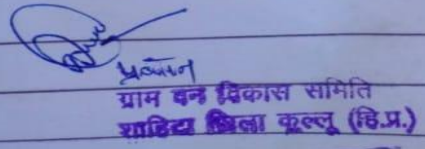 प्रधान
ग्राम वन विकास समिति
जिला कुल्लू (हि.प्र.)